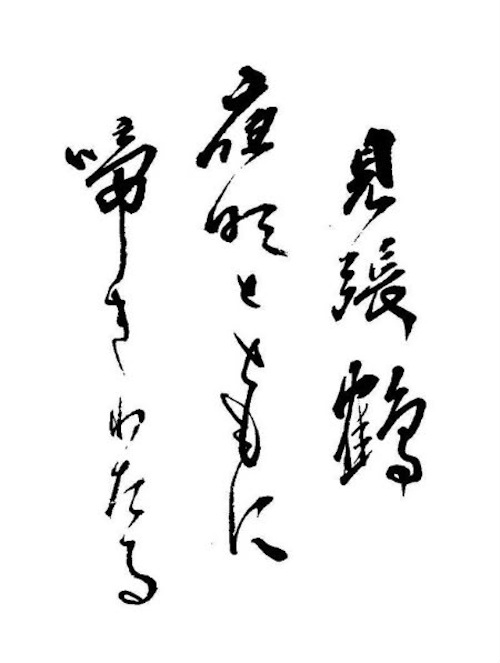 見張鶴
夜明とともに
啼きわたる